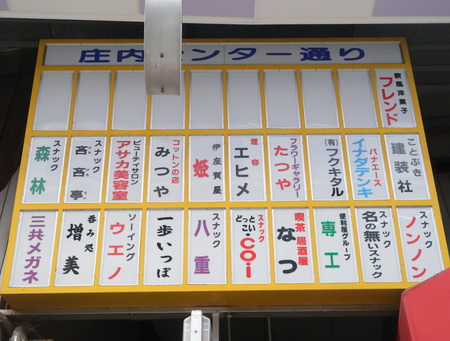 庄内センター通り
欧風洋菓子
フレンド
ことぶき
建装社
パナエース
イナダデンキ
(有)
フクキタル
フラワーギャラリー
たつや
理容
エヒメ
伊座賀屋
姫
コットンの店
みつや
ビューティサロン
アサカ美容室
スナック
吝吝亭
スナック
森林
スナック
ノンノン
スナック
名の無いスナック
便利屋グループ
専工
喫茶 居酒屋
なつ
スナック
どっとい
こい
・COi
スナック
八重
一歩いっぽ
ソーイング
ウエノ
呑み処
増美
三共メガネ